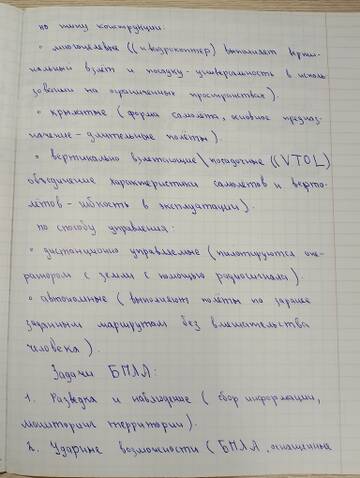 по типу конструкции:
• многоцелевые ((квадрокоптер) выполняет верти-
кальный взлёт и посадку - универсальность в исполь
зовании на ограниченных пространствах).
• крылатые (форма самолёта, основное предназ-
начение - длительные полёты).
• вертикально взлетающие\посадочные ((VTOL)
объединение характеристики самолётов и верто-
лётов - гибкость в эксплуатации).
по способу управления:
• дистанционно управляемые (пилотируются опе-
ратором с земли с помощью радиосигнала).
• автономные (выполняют полёты по заранее
заданным маршрутам без вмешательства
человека).
Задачи БПЛА:
1. Разведка и наблюдение (сбор информации,
мониторинг территории).
2. Ударные возможности (БПЛА, оснащённые